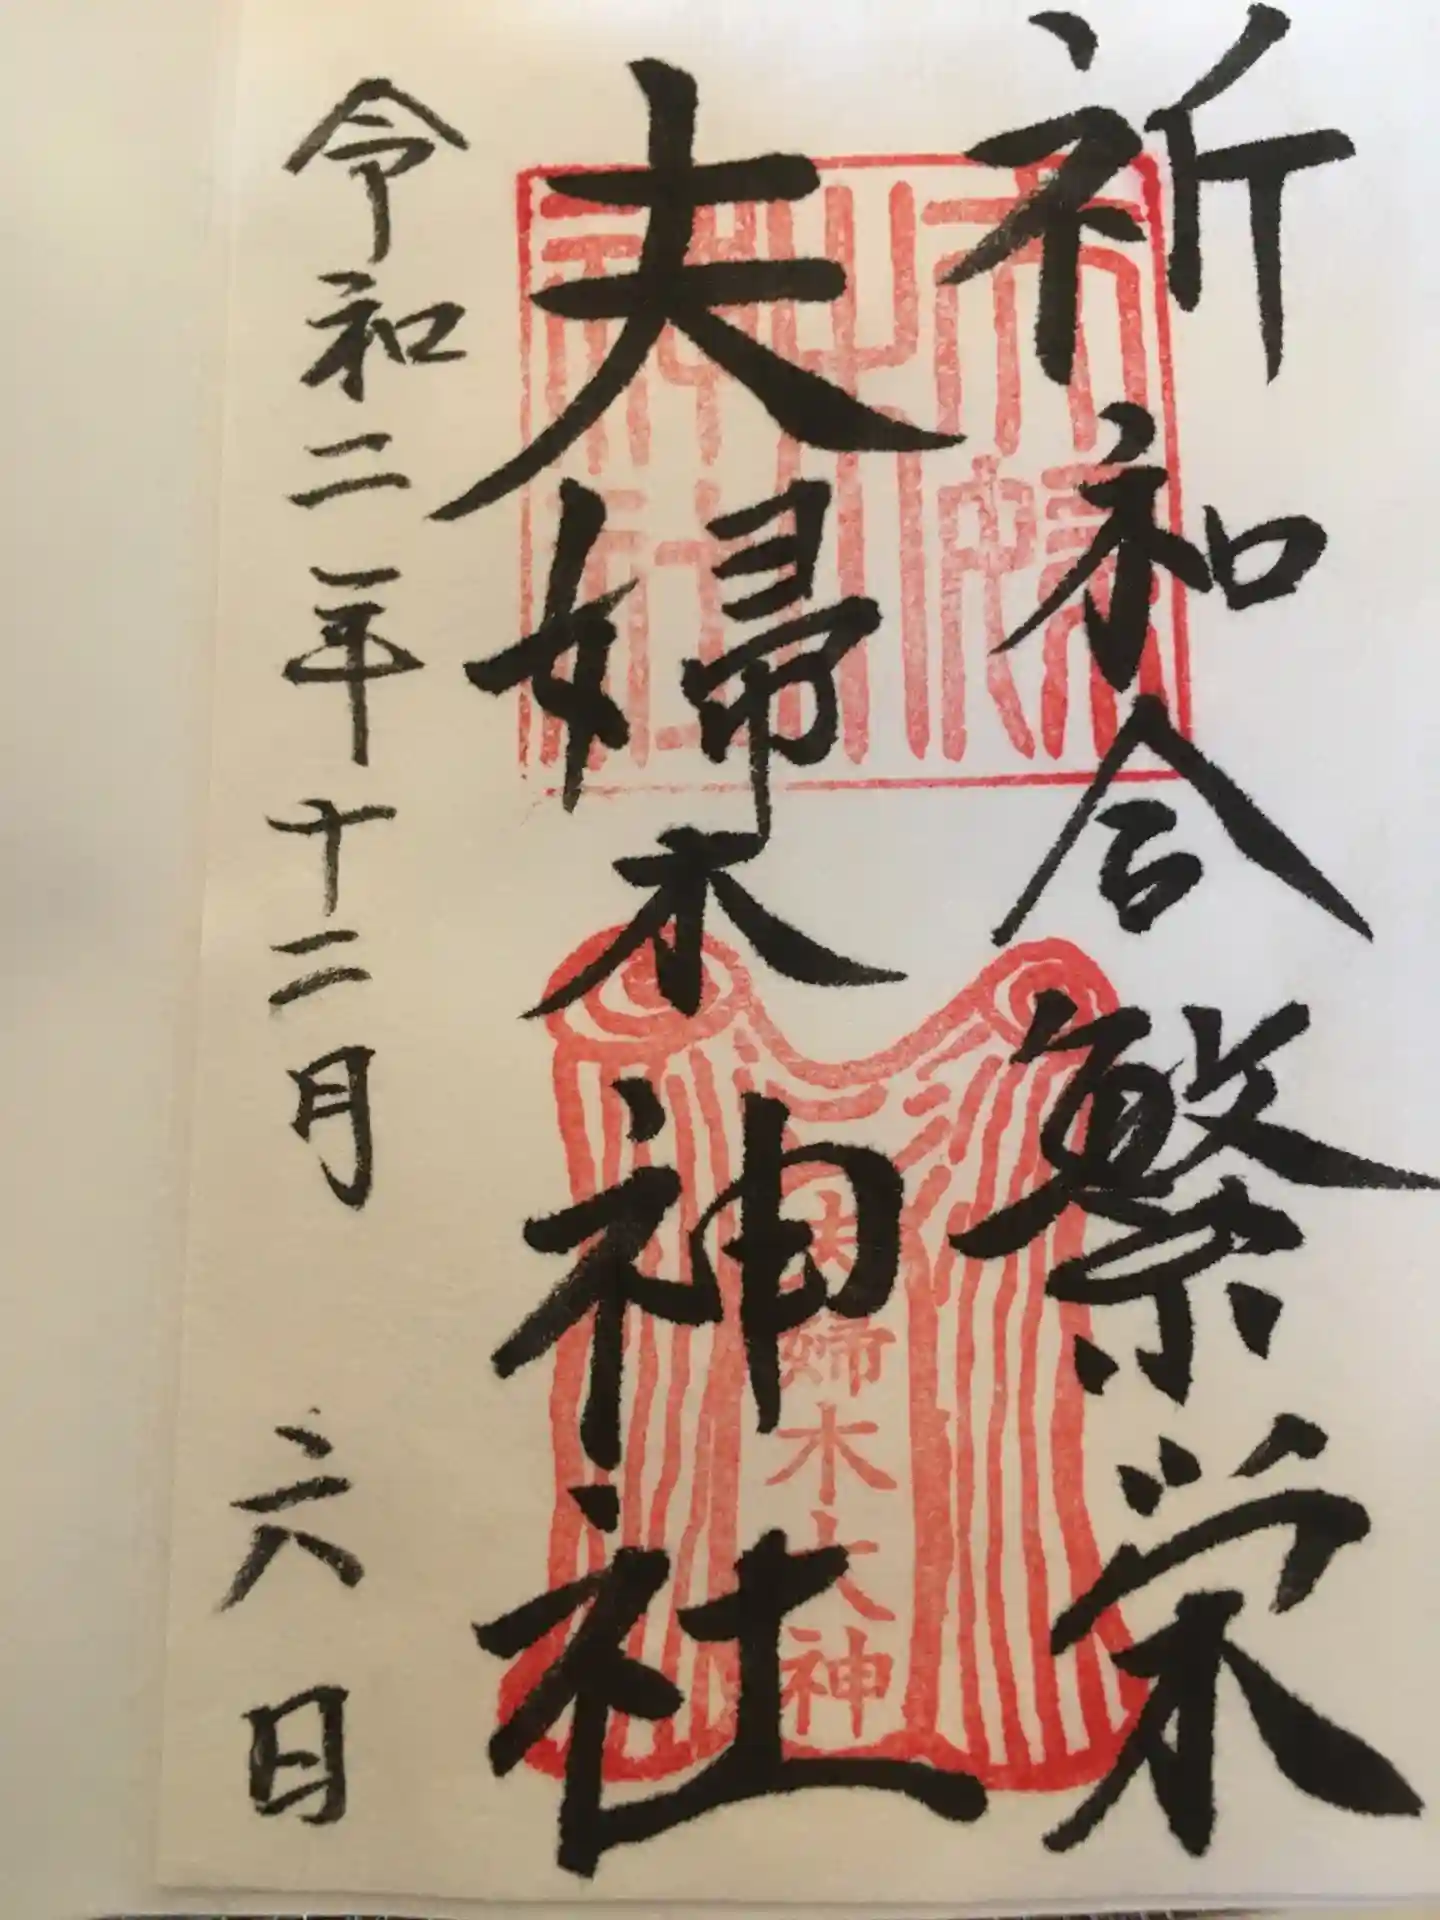 祈和合繁栄
夫婦木神社
夫婦木大神
令和二年十二月六日